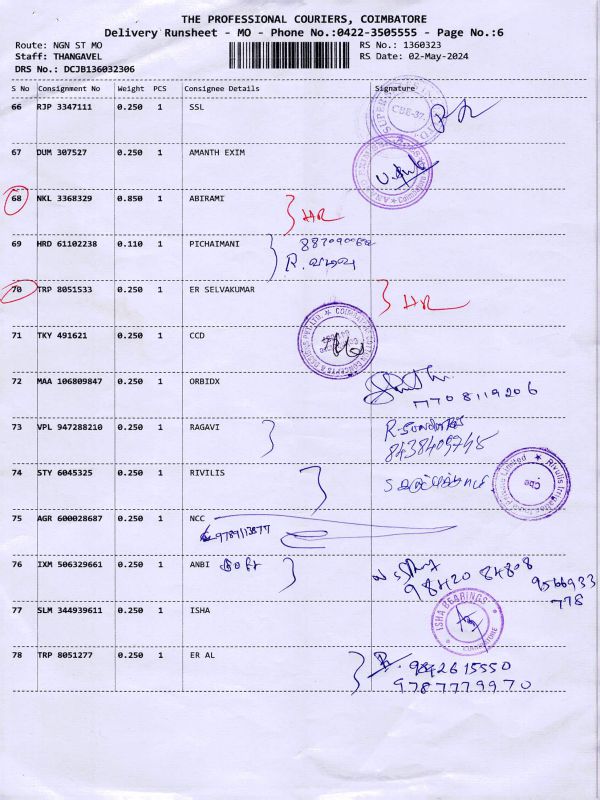 THE PROFESSIONAL COURIERS, COIMBATORE
Delivery Runsheet - MO - Phone No.:0422-3505555 - Page No.:6
Route: NGN ST MO RS No.: 1360323
Staff: THANGAVEL RS Date: 02-May-2024
DRS No.: DCJB136032306
S No Consignment No Weight PCS Consignee Details Signature
66 RJP 3347111 0.250 1 SSL
CBE-37
67 DUM 307527 0.250 1 AMANTH EXIM
68 NKL 3368329 0.850 1 ABIRAMI
69 HRD 61102238 0.110 1 PICHAIMANI
70 TRP 8051533 0.250 1 ER SELVAKUMAR
71 TKY 491621 0.250 1 CCD
72 MAA 106809847 0.250 1 ORBIDX
7708119206
73 VPL 947288210 0.250 1 RAGAVI
8438409745
74 STY 6045325 0.250 1 RIVILIS
Rivulis Irrigation India Private Limited
Cbe
75 AGR 600028687 0.250 1 NCC
76 IXM 506329661 0.250 1 ANBI
98420 84808
9566933
778
77 SLM 344939611 0.250 1 ISHA
ISHA BEARINGS
COIMBATORE
78 TRP 8051277 0.250 1 ER AL
9842615550
9787779970